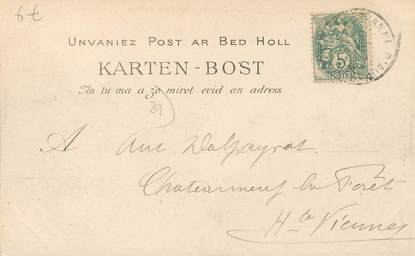 6€
UNVANIEZ POST AR BED HOLL
KARTEN-BOST
An tu ma a zo miret evid an adress.
29
A Ant Dalpayrat
Chateauneuf la Forêt
Hte Vienne
5
POSTES